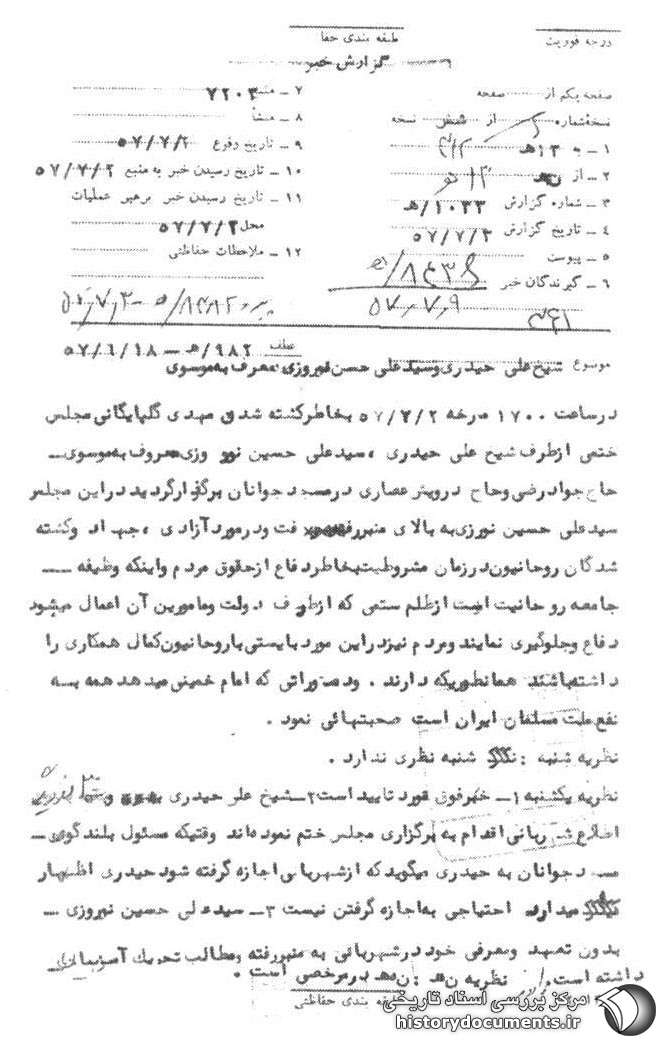 درجه فوریت
طبقه بندی حفا
گزارش خبر
صفحه یکم از صفحه
نسخه‌شماره از شش نسخه
۱ – به ۱۳ﻫ
۲ – از
۳ – شماره گزارش ۱۰۳۳/ﻫ
۴ – تاریخ گزارش ۵۷/۷/۳
۵ – پیوست
۶ – گیرندگان خبر
۷ – منبع ۷۲۰۳
۸ – منشأ
۹ – تاریخ وقوع ۵۷/۷/۲
۱۰ – تاریخ رسیدن خبر به منبع ۵۷/۷/۲
۱۱ – تاریخ رسیدن خبر برهبر عملیات
محل ۵۷/۷/۳
۱۲ – ملاحظات حفاظتی
۵۷٫۷٫۹
عطف ۹۸۲/ﻫ – ۵۷/۶/۱۸
موضوع شیخ علی حیدری وسید علی حسن نوروزی معرف به موسوی
درساعت ۱۷۰۰ مورخه ۵۷/۷/۲ بخاطر کشته شدن مهدی گلپایگانی مجلس
ختمی ازطرف شیخ علی حیدری ، سید علی حسین نورو وزی معروف به موسوی –
حاج جواد رضی وحاج درویش عصاری درمسجد جوانان برگزار گردید دراین مجلس
سید علی حسین نورزی به بالای منبر رفت ودرمورد آزادی ، جهاد وکشته
شدگان روحانیون درزمان مشروطیت بخاطر دفاع ازحقوق مردم واینکه وظیفه –
جامعه روحانیت است ازظلم ستمی که ازطرف دولت ومامورین آن اعمال میشود
دفاع وجلوگیری نمایند ومردم نیزدراین مورد بایستی باروحانیون کمال همکاری را
داشته باشند همانطوریکه دارند . ودستوراتی که امام خمینی میدهد همه به
نفع ملت مسلمان ایران است صحبتهائی نمود .
نظریه شنبه : شنبه نظری ندارد .
نظریه یکشنبه ۱– خبرفوق مورد تایید است ۲– شیخ علی حیدری بدون
اطلاع شهربانی اقدام به برگزاری مجلس ختم نموده‌اند وقتیکه مسئول بلندگوی –
مسجد جوانان به حیدری میگوید که ازشهربانی اجازه گرفته شود حیدری اظهار
میدارد احتیاجی به اجازه گرفتن نیست ۳– سید علی حسین نوروزی –
بدون تعهد ومعرفی خود درشهربانی به منبر رفته ومطالب تحریک آمیز بیان
داشته است . نظریه : درمرخصی است .
طبقه بندی حفاظتی
مرکز بررسی اسناد تاریخی
historydocuments.ir